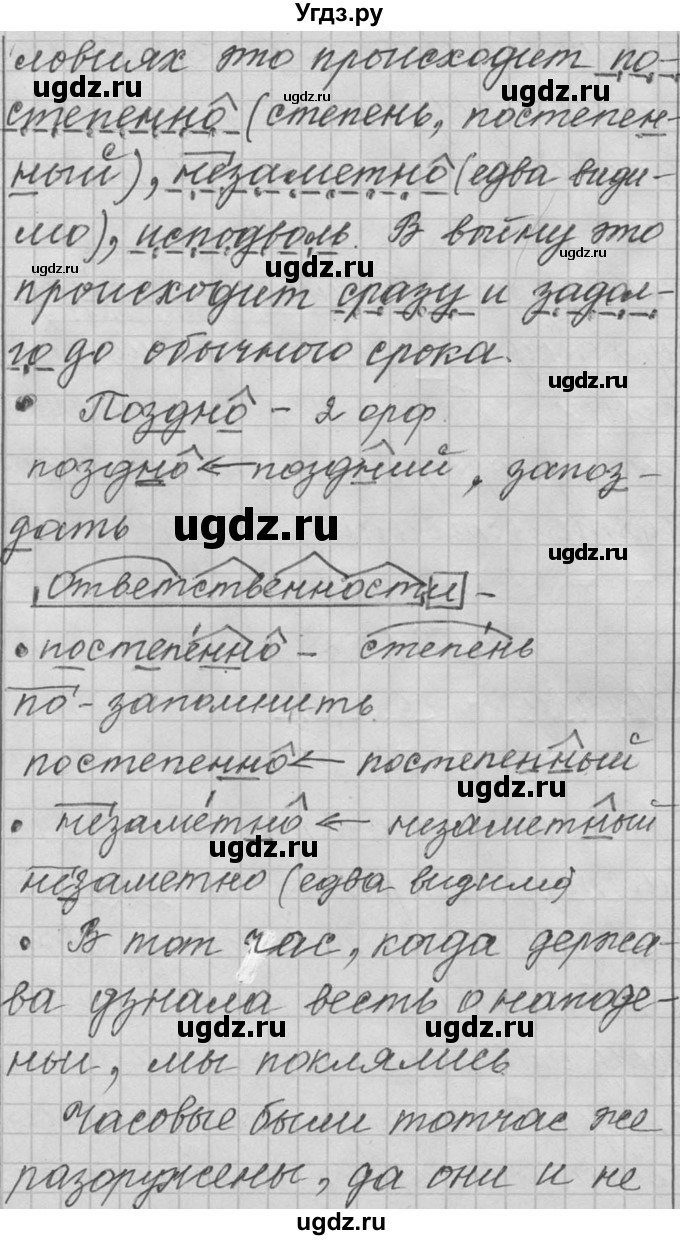 Угдз.ру
ловиях это происходит по-
ugdz.ru ugdz.ru ugdz.ru
степенно (степень, постепен-
ный), незаметно (едва види-
ugdz.ru
мо), исподволь. В войну это
ugdz.ru ugdz.ru ugdz.ru
происходит сразу и задол-
го до обычного срока.
ugdz.ru
• Поздно – 2 орф.
поздно ← поздний, запоз-
дать
ugdz.ru ugdz.ru
ответственности –
• постепенно – степень
по- запомнить
постепенно ← постепенный
ugdz.ru
• незаметно ← незаметный
ugdz.ru
незаметно (едва видимо)
• В тот час, когда держа-
ва узнала весть о нападе-
ugdz.ru ugdz.ru
ньи, мы поклялись
Часовые были тотчас же
разоружены, да они и не
ugdz.ru